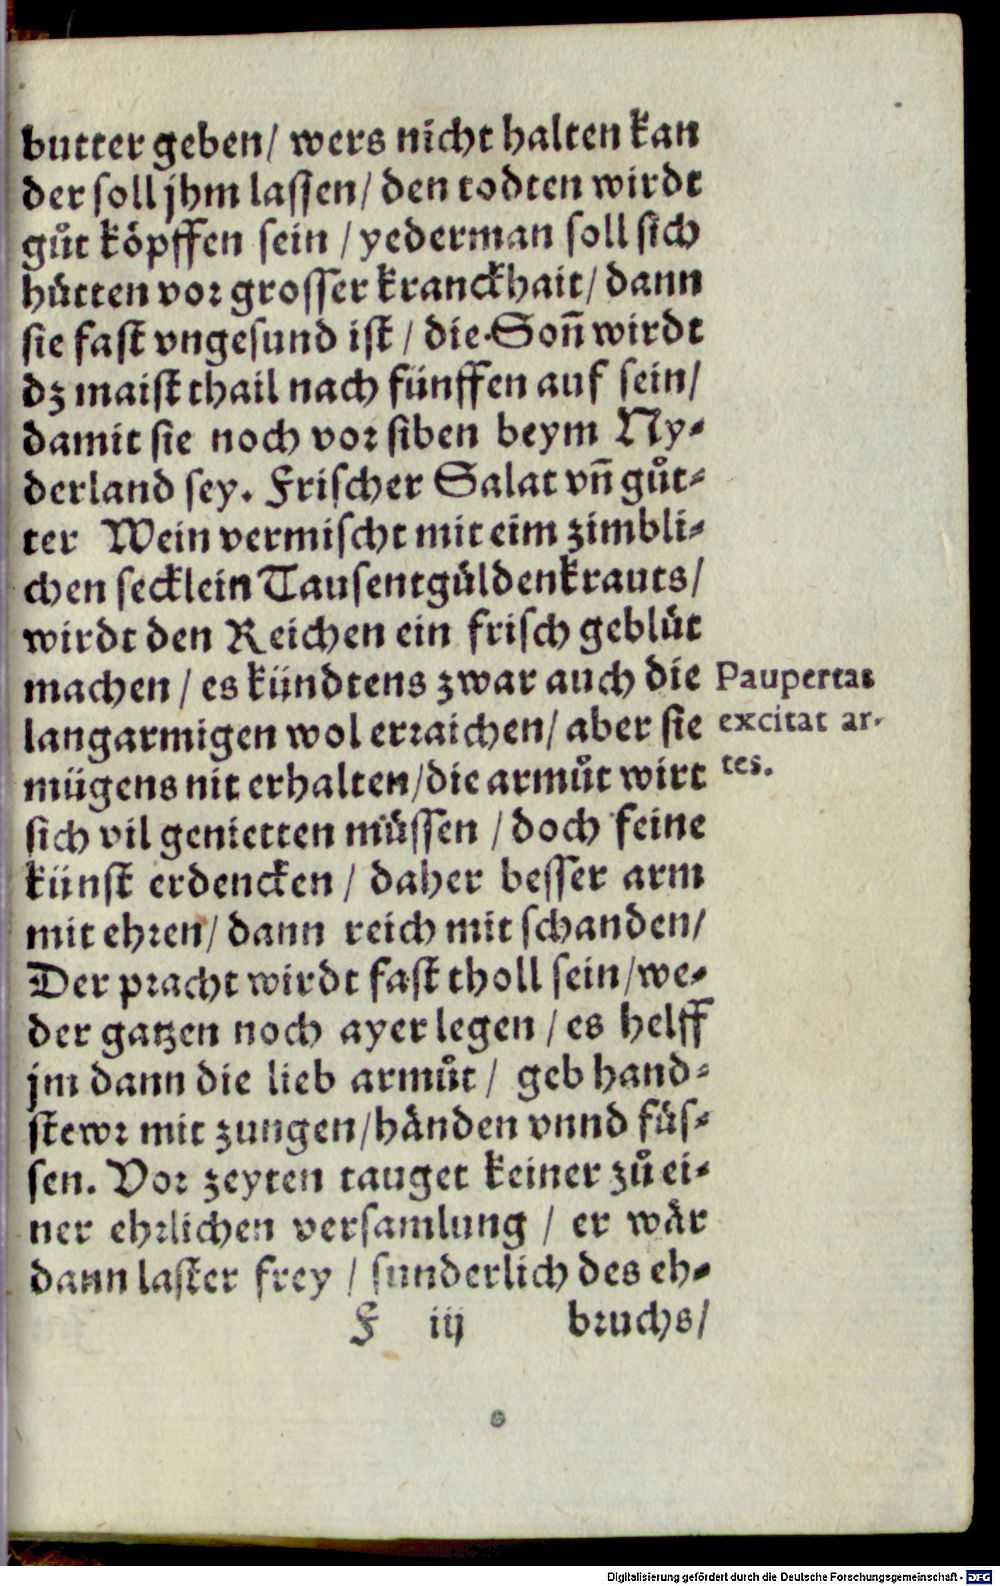 butter geben/ wers nicht halten kan
der soll jhm lassen/ den todten wirdt
gůt köpffen sein / yederman soll sich
hütten vor grosser kranckhait/ dann
sie fast vngesund ist / die Soñ wirdt
dz maist thail nach fünffen auf sein/
damit sie noch vor siben beym Ny-
derland sey. Frischer Salat vñ gůt-
ter Wein vermischt mit eim zimbli-
chen secklein Tausentgüldenkrauts/
wirdt den Reichen ein frisch geblüt
machen / es kündtens zwar auch die
langarmigen wol erraichen/ aber sie
mügens nit erhalten/die armůt wirt
sich vil genietten müssen / doch feine
künst erdencken / daher besser arm
mit ehren/ dann reich mit schanden/
Der pracht wirdt fast tholl sein/we-
der gatzen noch ayer legen / es helff
jm dann die lieb armůt / geb hand-
stewr mit zungen/händen vnnd füs-
sen. Vor zeyten tauget keiner zů ei-
ner ehrlichen versamlung / er wär
dann laster frey / sunderlich des eh-
F iij bruchs/
Paupertas
excitat ar-
tes.
Digitalisierung gefördert durch die Deutsche Forschungsgemeinschaft - DFG